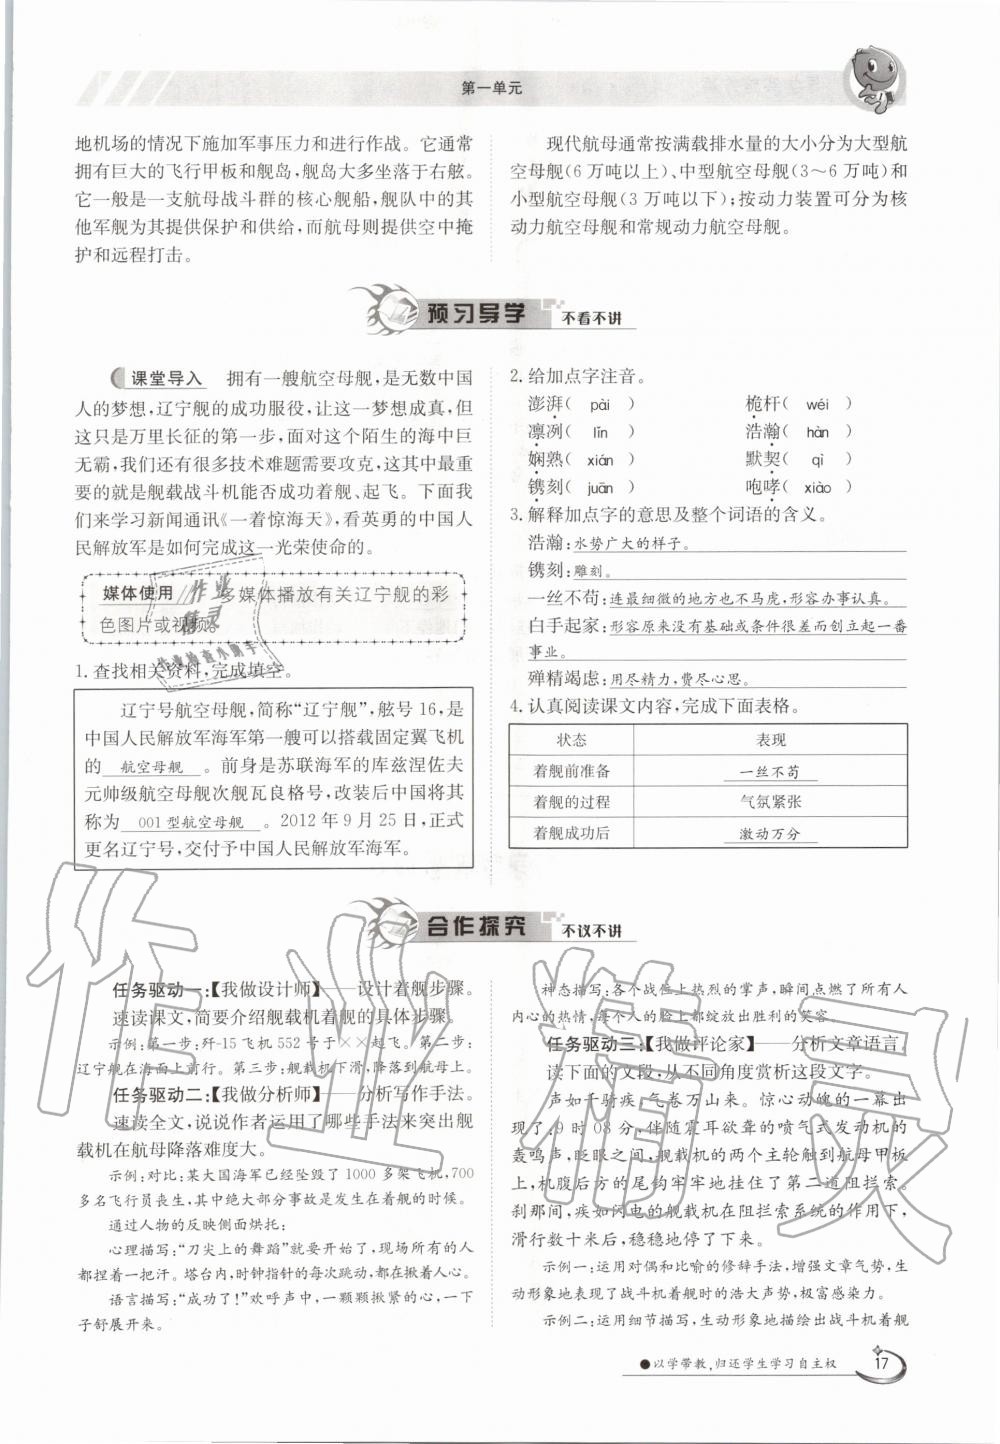 第一单元
地机场的情况下施加军事压力和进行作战。它通常
拥有巨大的飞行甲板和舰岛,舰岛大多坐落于右舷。
它一般是一支航母战斗群的核心舰船,舰队中的其
他军舰为其提供保护和供给,而航母则提供空中掩
护和远程打击。
现代航母通常按满载排水量的大小分为大型航
空母舰(6万吨以上)、中型航空母舰(3~6万吨)和
小型航空母舰(3万吨以下);按动力装置可分为核
动力航空母舰和常规动力航空母舰。
预习导学 不看不讲
课堂导入 拥有一艘航空母舰,是无数中国
人的梦想,辽宁舰的成功服役,让这一梦想成真,但
这只是万里长征的第一步,面对这个陌生的海中巨
无霸,我们还有很多技术难题需要攻克,这其中最重
要的就是舰载战斗机能否成功着舰、起飞。下面我
们来学习新闻通讯《一着惊海天》,看英勇的中国人
民解放军是如何完成这一光荣使命的。
媒体使用 多媒体播放有关辽宁舰的彩
色图片或视频。
1.查找相关资料,完成填空。
辽宁号航空母舰,简称“辽宁舰”,舷号16,是
中国人民解放军海军第一艘可以搭载固定翼飞机
的 航空母舰 。前身是苏联海军的库兹涅佐夫
元帅级航空母舰次舰瓦良格号,改装后中国将其
称为 001型航空母舰 。2012年9月25日,正式
更名辽宁号,交付予中国人民解放军海军。
2.给加点字注音。
澎湃( pài ) 桅杆( wéi )
凛冽( lǐn ) 浩瀚( hàn )
娴熟( xián ) 默契( qì )
镌刻( juān ) 咆哮( xiào )
3.解释加点字的意思及整个词语的含义。
浩瀚:水势广大的样子。
镌刻:雕刻。
一丝不苟:连最细微的地方也不马虎,形容办事认真。
白手起家:形容原来没有基础或条件很差而创立起一番
事业。
殚精竭虑:用尽精力,费尽心思。
4.认真阅读课文内容,完成下面表格。
状态 表现
着舰前准备 一丝不苟
着舰的过程 气氛紧张
着舰成功后 激动万分
合作探究 不议不讲
任务驱动一:【我做设计师】——设计着舰步骤。
速读课文,简要介绍舰载机着舰的具体步骤。
示例:第一步:歼-15飞机552号于××起飞。第二步:
辽宁舰在海面上前行。第三步:舰载机下滑,降落到航母上。
任务驱动二:【我做分析师】——分析写作手法。
速读全文,说说作者运用了哪些手法来突出舰
载机在航母降落难度大。
示例:对比:某大国海军已经坠毁了1000多架飞机,700
多名飞行员丧生,其中绝大部分事故是发生在着舰的时候。
通过人物的反映侧面烘托:
心理描写:“刀尖上的舞蹈”就要开始了,现场所有的人
都捏着一把汗。塔台内,时钟指针的每次跳动,都在揪着人心。
语言描写:“成功了!”欢呼声中,一颗颗揪紧的心,一下
子舒展开来。
神态描写:各个战位上热烈的掌声,瞬间点燃了所有人
内心的热情,每个人的脸上都绽放出胜利的笑容。
任务驱动三:【我做评论家】——分析文章语言。
读下面的文段,从不同角度赏析这段文字。
声如千骑疾,气卷万山来。惊心动魄的一幕出
现了:9时08分,伴随震耳欲聋的喷气式发动机的
轰鸣声,眨眼之间,舰载机的两个主轮触到航母甲板
上,机腹后方的尾钩牢牢地挂住了第二道阻拦索。
刹那间,疾如闪电的舰载机在阻拦索系统的作用下,
滑行数十米后,稳稳地停了下来。
示例一:运用对偶和比喻的修辞手法,增强文章气势,生
动形象地表现了战斗机着舰时的浩大声势,极富感染力。
示例二:运用细节描写,生动形象地描绘出战斗机着舰
●以学带教,归还学生学习自主权
17
作业精灵
作业
精灵
作业检查小助手